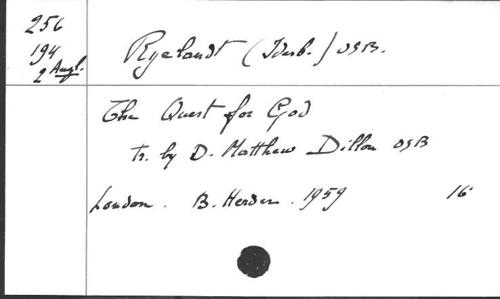 256
194
2 Aufl.
Ryelandt (Idesb.) OSB.
The Quest for God
tr. by D. Matthew Dillon OSB
London. B. Herder. 1959 16°